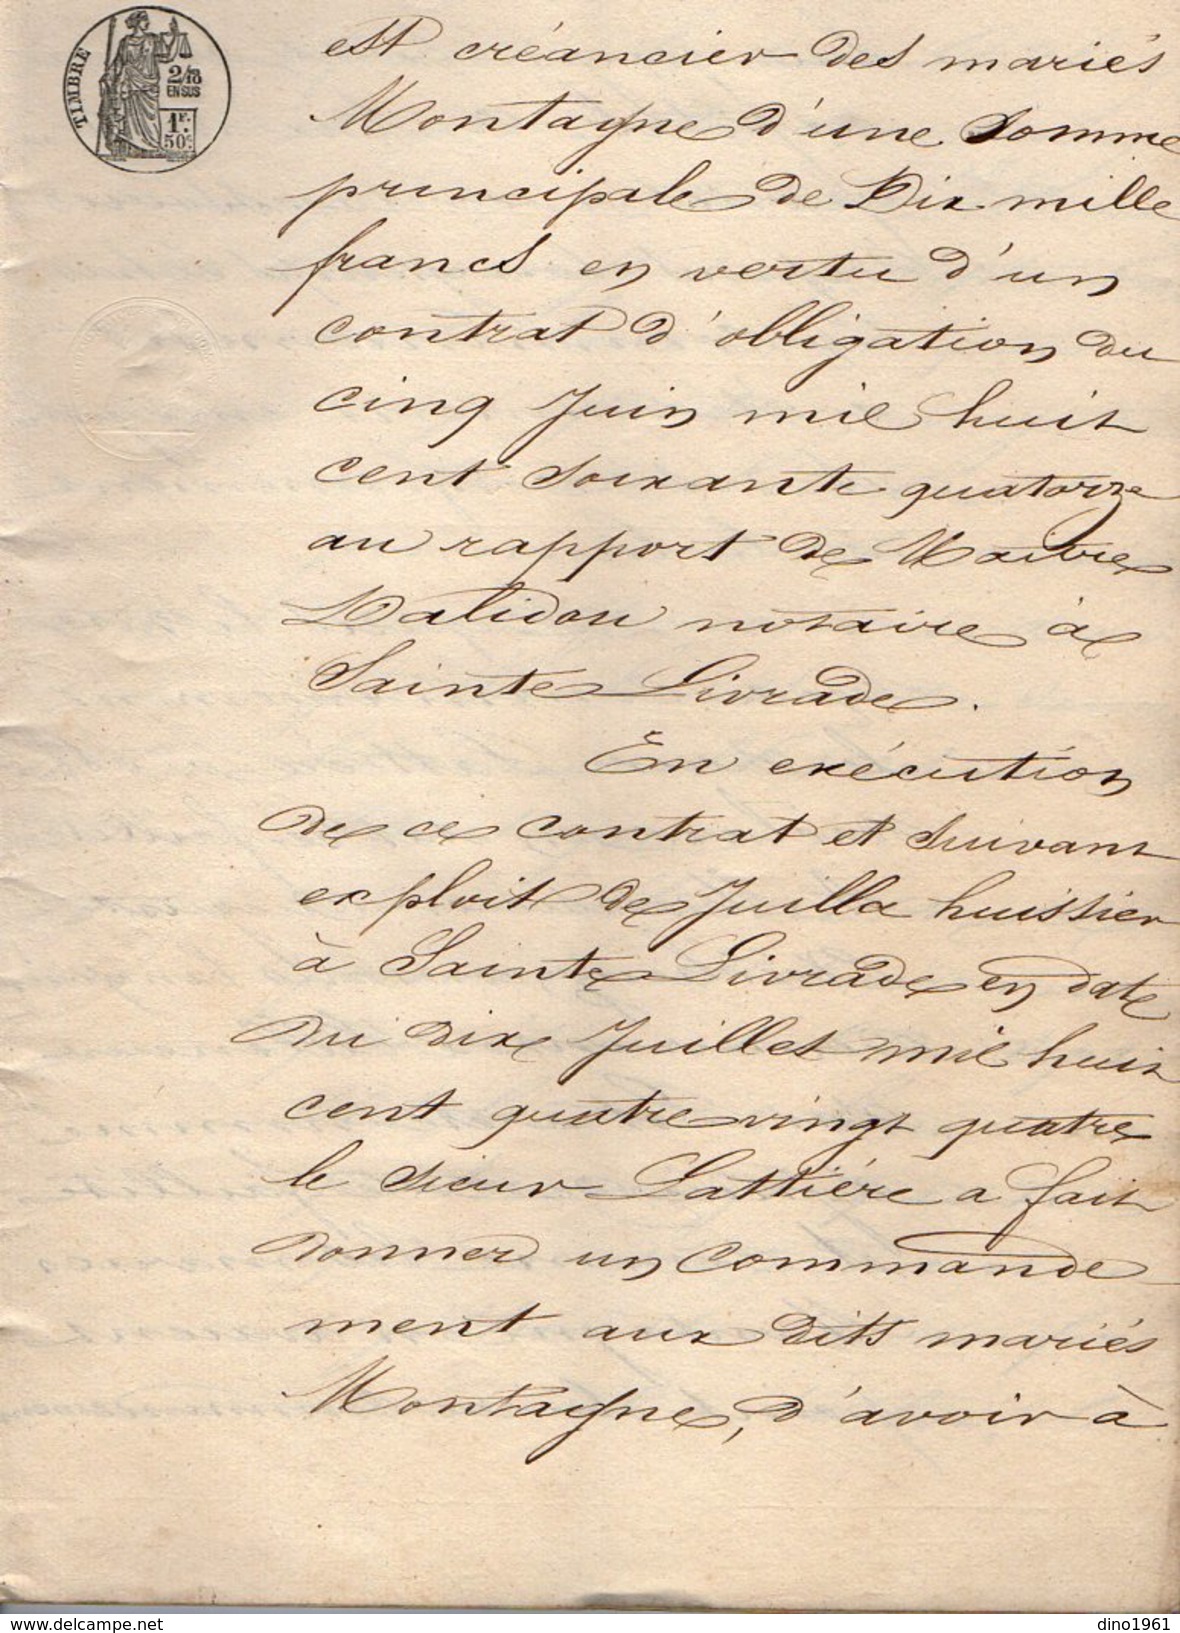 TIMBRE
2/10
EN SUS
1F.
50c.
est créancier des mariés
Montagne d'une somme
principale de Dix mille
francs en vertu d'un
contrat d'obligation du
cinq Juin mil huit
cent soixante quatorze
au rapport de Maitre
Dalidou notaire à
Sainte Livrade.
En exécution
de ce contrat et suivant
exploit de Juilla huissier
à Sainte Livrade en date
du dix Juillet mil huit
cent quatre vingt quatre
le sieur Lattière a fait
donner un commande
ment aux dits mariés
Montagne, d'avoir à
dino1961